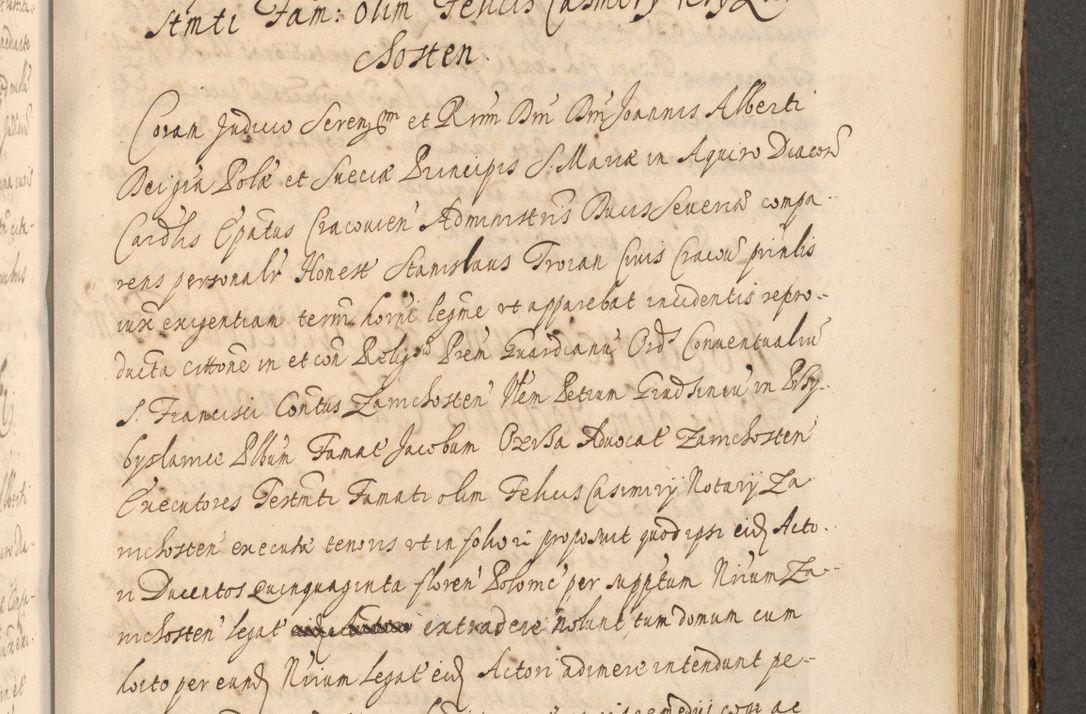 stmti Fam: olim Felicis Casimiry
chosten.
Coram Judicio Serenssm et Rmi Dni Dni Joannis Alberti
Dei gra Polæ et Sueciæ Principis S. Mariæ in Aquiro Diacon
Cardlis Epatus Cracovien Administris Ducis Severiæ compa-
rens personalr Honest Stanislaus Troian Civis Cracov prinlis
iux exigentiam term horni legme vt apparebat incidentis repro-
ducta cittone in et con Religm Prem Guardianu Ord Conventualiu
S. Francisci Contus Zamchosten Nem Petrum Grudsinsu in Prby-
byslamice Plbum Famat Jacobum Advocat Zamchosten
Executores Testmti Famati olim Felicis Casimiry Notary Za-
michosten executæ tenoris vt in folio ri proposuit quod ipsi eidz Acto-
ri Ducentos quinquaginta floren Polonic per suppttum Nrium Za-
michosten legat extradere nolunt, tum domum cum
horto per eundz Nrium legat eidz Actori adimere intendunt pe-